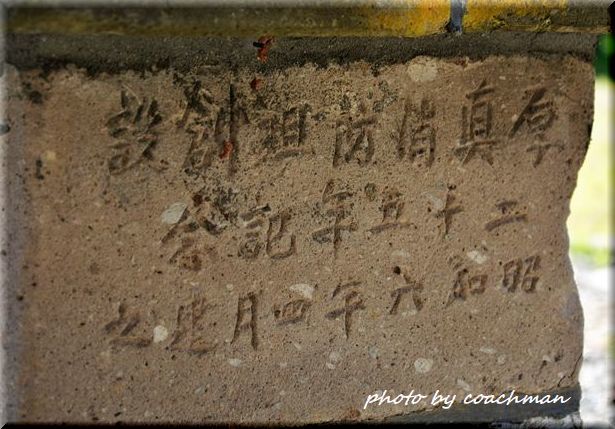 厚真消防組創設
二十五年記念
昭和六年四月建之
photo by coachman